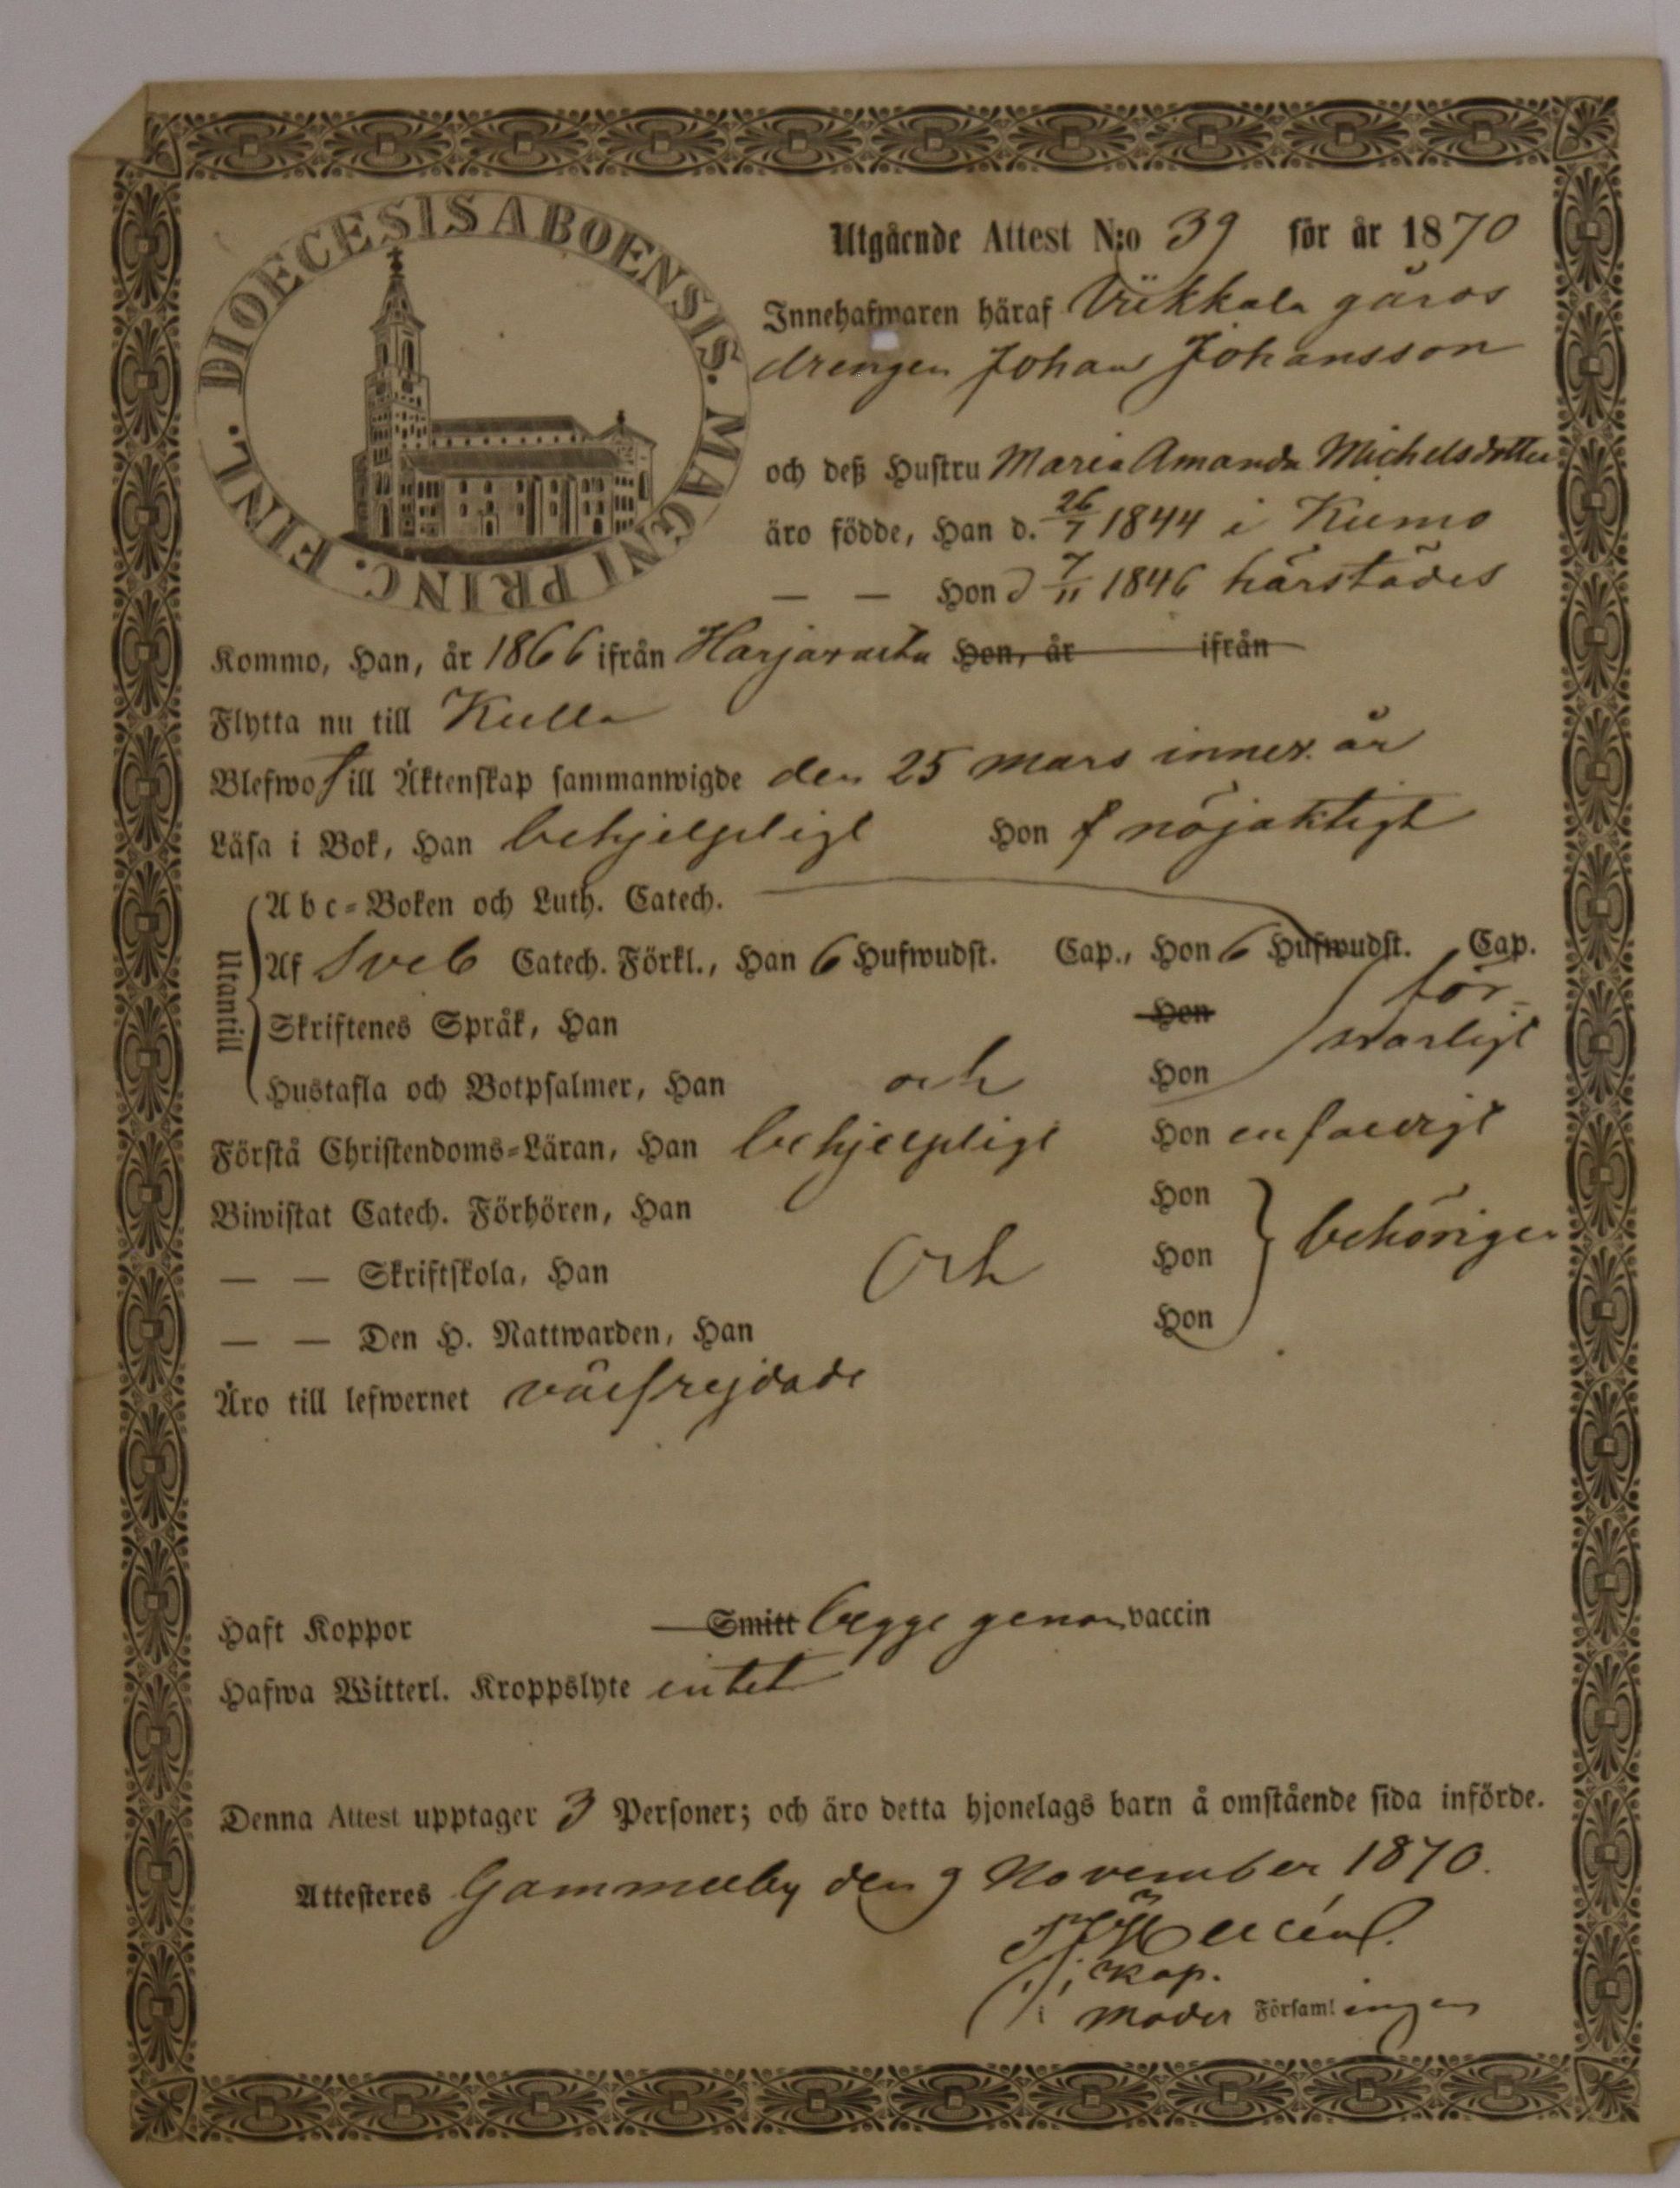 DIOECESIS ABOENSIS. MAGNI PRINC. FINL.
Utgående Attest N:o 39 för år 1870
Innehafwaren häraf Viikkala gårds
drengen Johan Johansson
och deß Hustru Maria Amanda Michelsdotter
äro födde, Han d. 26/7 1844 i Kumo
— — Hon d 7/11 1846 härstädes
Kommo, Han, år 1866 ifrån Harjavalta Hon, år ifrån
Flytta nu till Kulla
Blefwo till Äktenskap sammanwigde den 25 mars innev. år
Läsa i Bok, Han behjelpligt Hon nöjaktigt
Utantill
Abc-Boken och Luth. Catech.
Af Sveb Catech. Förkl., Han 6 Hufwudst. Cap., Hon 6 Hufwudst. Cap.
Skriftenes Språk, Han Hon för-
svarligt
Hustafla och Botpsalmer, Han och Hon
Förstå Christendoms-Läran, Han behjelpligt Hon enfaldigt
Biwistat Catech. Förhören, Han Hon
— — Skriftskola, Han och Hon behörigen
— — Den H. Nattwarden, Han Hon
Äro till lefwernet välfrejdade
Haft Koppor Smitt begge genom vaccin
Hafwa Witterl. Kroppslyte intet
Denna Attest upptager 3 Personer; och äro detta hjonelags barn å omstående sida införde.
Attesteres Gammelby den 9 November 1870.
kap.
i moder Församlingen